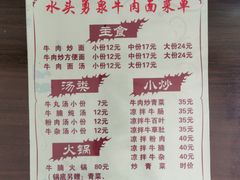 水头勇泉牛肉面菜单
主食
牛肉炒面 小份12元 中份17元 大份24元
牛肉炒方便面 小份12元 中份17元 大份24元
牛肉面汤 小份12元 中份17元 大份20元
汤类
牛丸汤小份 7元
牛腩炖小份 12元
粉肉汤小份 12元
牛杂汤小份 12元
火锅
牛腩火锅 80元
小炒
牛肉炒青菜 35元
凉拌牛肠 35元
凉拌牛百叶 35元
凉拌牛草肚 35元
凉拌粉肉 35元
凉拌牛腩 35元
凉拌牛杂 40元
炒青菜 时价